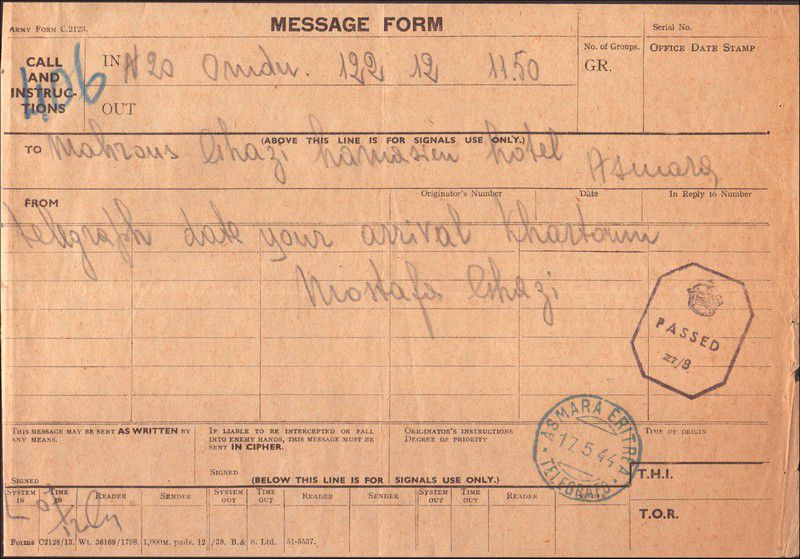 ARMY FORM C.2128.
MESSAGE FORM
Serial No.
CALL AND INSTRUCTIONS
406
IN
N 20 Omdu. 122 12 11.50
OUT
No. of Groups.
GR.
OFFICE DATE STAMP
(ABOVE THIS LINE IS FOR SIGNALS USE ONLY.)
TO
Mahrous Ghazi hamasien hotel Asmara
FROM
Originator's Number
Date
In Reply to Number
telegraph date your arrival Khartoum
Mostafa Ghazi
PASSED
ASMARA ERITREA
17.5.44
TELEGRAFO
THIS MESSAGE MAY BE SENT AS WRITTEN BY
ANY MEANS.
SIGNED
IF LIABLE TO BE INTERCEPTED OR FALL
INTO ENEMY HANDS, THIS MESSAGE MUST BE
SENT IN CIPHER.
SIGNED
ORIGINATOR'S INSTRUCTIONS
DEGREE OF PRIORITY
TIME OF ORIGIN
(BELOW THIS LINE IS FOR SIGNALS USE ONLY.)
T.H.I.
SYSTEM IN
TIME IN
READER
SENDER
SYSTEM OUT
TIME OUT
READER
SENDER
SYSTEM OUT
TIME OUT
READER
T.O.R.
Forms C2128/13. Wt. 36169/1798. 1,000M. pads. 12/39. B.& S. Ltd. 51-5537.